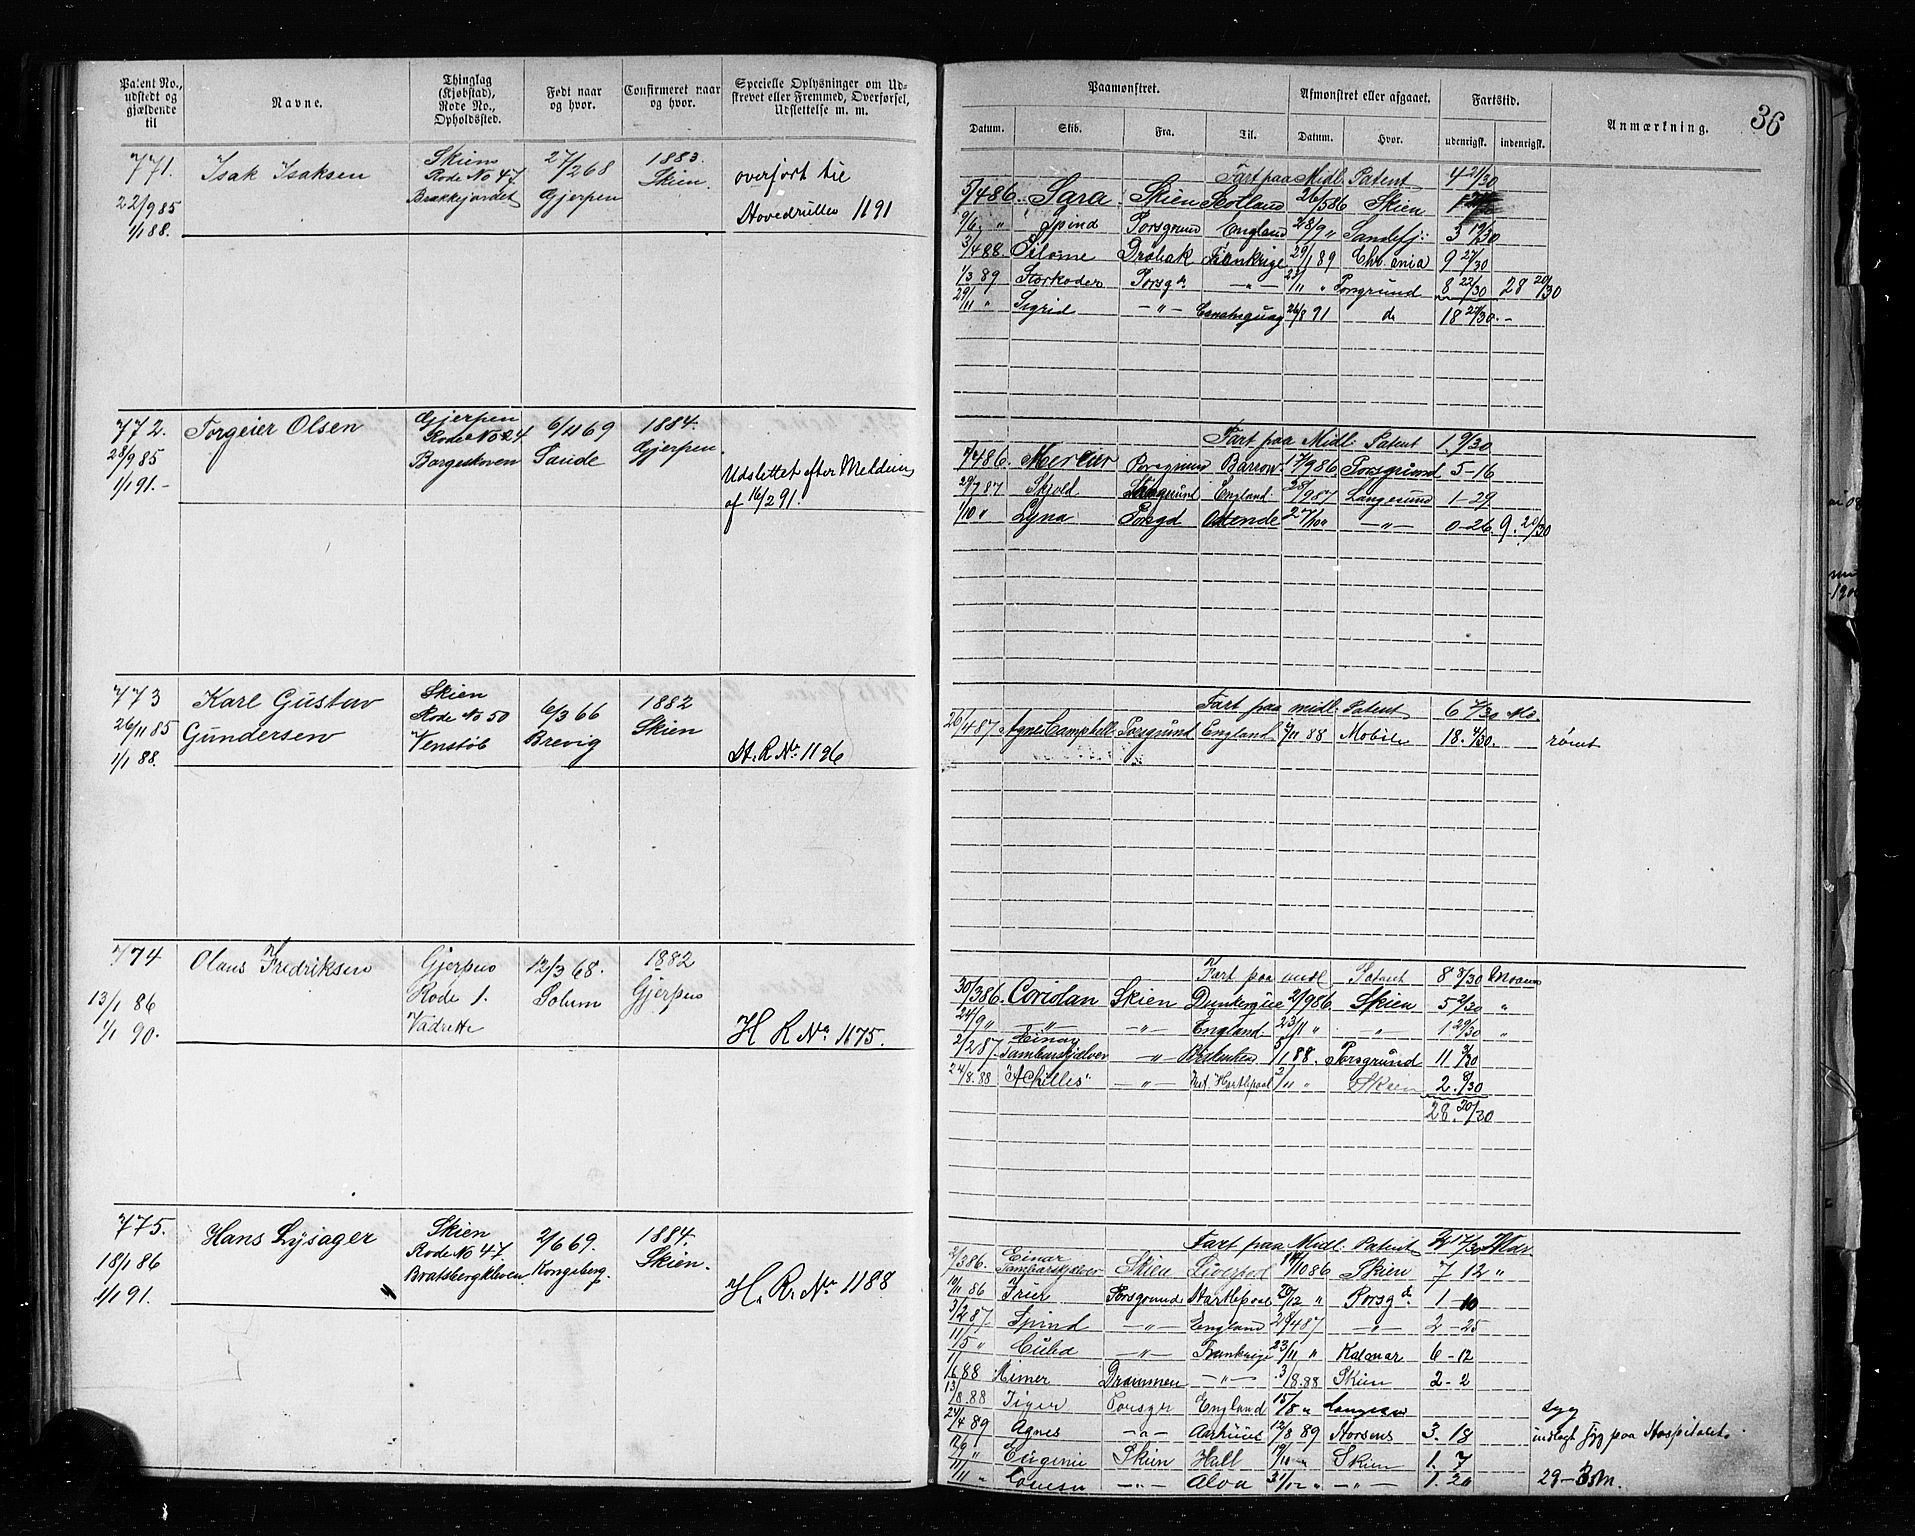 Patent No., udstedt og gjældende til
Navne.
Thinglag (Kjøbstad), Rode No., Opholdssted.
Født naar og hvor.
Confirmeret naar og hvor.
Specielle Oplysninger om Udskrevet eller Fremmed, Overførsel, Udslettelse m. m.
Paamønstret.
Afmønstret eller afgaaet.
Fartstid.
Anmærkning.
36
Datum. Skib. Fra. Til. Datum. Hvor. udenrigsk. indenrigsk.
771. Isak Isaksen Skiens 27/2 68 1883. overført til
Rode No 47 Skien.
22/9 85 Brækkejordet Gjerpen Hovedrullen 1191
1/1 88.
Fart paa Midl. Patent 4 21/30
5/4 86. Sara Skien Scotland 26/5 86 Skien
9/6 " Spind Porsgrund England 28/9 " Sandefj: 3 19/30
3/4 88. Drøbak Frankrige 29/1 89 Chr.ania 9 27/30
1/3 89 Størkodder Porsgd. —"— 23/11 " Porsgrund 8 22/30 28 20/30
29/11 " Sigrid —"— 26/8 91 do 18 27/30. -
772. Torgeier Olsen Gjerpen 6/11 69 1884.
Rode No 24 Gjerpen.
28/9 85 Borgeskoven Saude Udslettet efter Meldin
1/1 91. - af 16/2 91.
Fart paa Midl. Patent 1. 9/30
7/4 86. Mercur Porsgrund Barrow. 17/9 86 Porsgrund 5-16
29/7 87 Skjold England. 28/9 87 Langesund 1-29
1/10 " Lyna Porsgd Ostende 27/10 " —"— 0-26. 9. 20/30
773 Karl Gustav Skien 6/3 66 1882
26/11 85 Gundersen Rode No 50 Brevig Skien
1/1 88. Venstöb H. R No. 1126
Fart paa midl. Patent 6 7/30 Mo.
26/4 87 Agnes Campbell Porsgrund England 9/11 88 Mobile 18. 4/30. rømt
774 Olaus Fredriksen Gjerpen 12/3 68. 1882
13/1 86 Rode 1. Solum Gjerpen
1/1 90. Vadrette H R No. 1175.
Fart paa midl Patent 8 8/30 Moaner
30/3 86. Coriolan Skien Dunkerque 2/9 86 Skien 5 2/30 "
24/9 " —"— —"— England. 23/11 " —"— 1 29/30 "
2/2 87. Einar Tambarskjelver —"— 5/1 88. Porsgrund 11 3/30
24/8. 88 "Achilles" —"— Vest Hartlepool 2/11 " Skien 2. 8/30
28 20/30
775. Hans Lysager Skien 2/6 69. 1884.
18/1 86 Rode No 47 Skien.
1/1 91. Bratsbergkleven Kongsberg. H. R. No. 1188
Fart paa Midl. Patent
2/3 86. Einar Tambarskjelver Skien Liverpool 14/10 86 Skien 7 12 "
10/11 86 Frier Porsgrund Hartlepool 20/12 " Porsgd. 1-10
3/2 87. Spind —"— England 28/4 87 —"— 2-25
11/5 " Cuba —"— Frankrige 23/11 " Kalmar 6-12
1/6 88 Mimer Drammen —"— 3/8. 88 Skien 2-2
13/8. 88 Tiger Porsgr England 15/8 " Langesund syg
24/4 89 Agnes —"— Aarhuus 12/8 89 Horsens 3. 18 indlagt syg paa Hospitalet.
Eugenie Skien Hull 19/10 " Skien 1. 7
11/11 " —"— Aloa 31/12 " —"— 1. 20 29-3 Mn.